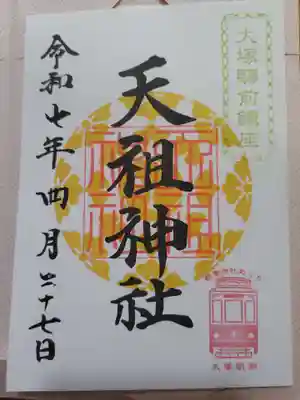 大塚驛前鎮座
天祖神社
令和七年四月二十七日
大塚駅前